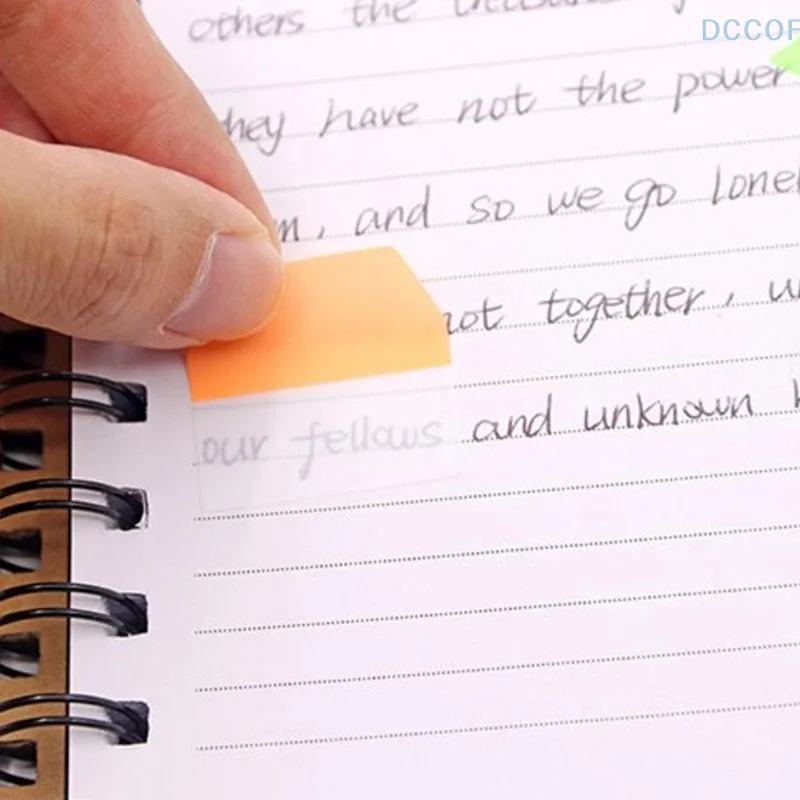 DCCOF
others the
they have not the power
m, and so we go lonel
not together, u
our fellows and unknown